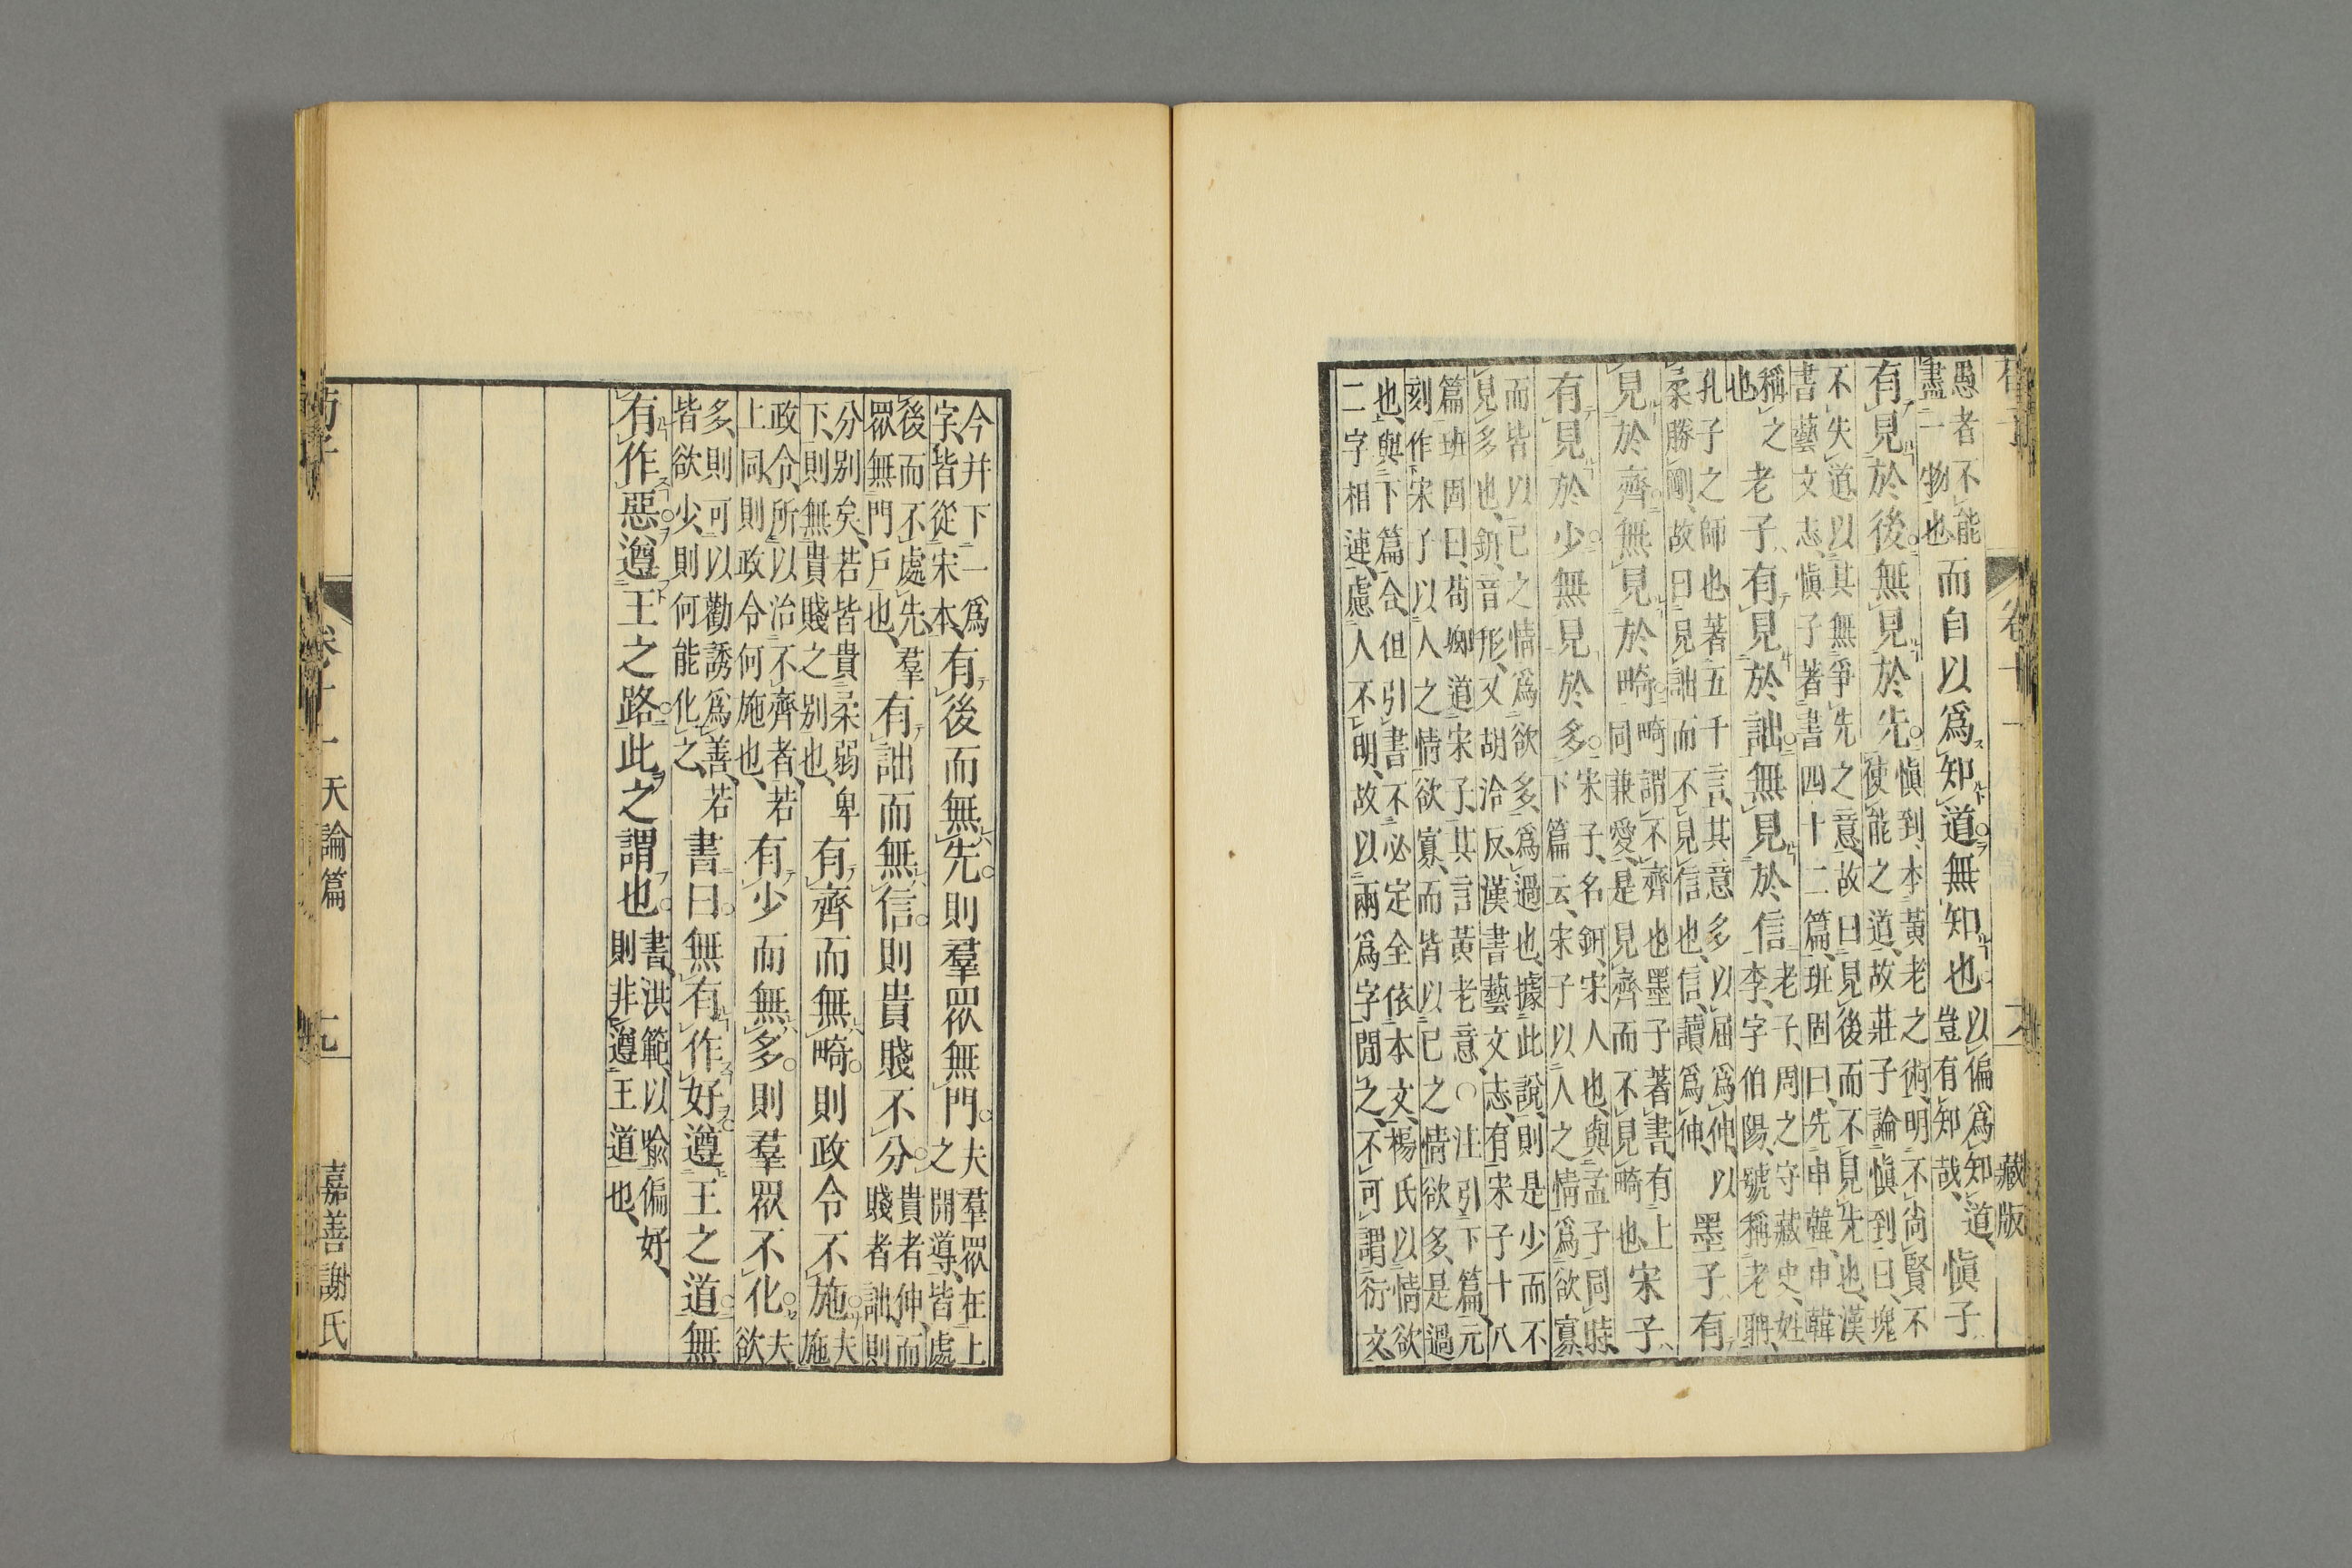 藏版
愚者不能盡一物也而自以爲知道無知也以偏爲知道豈有知哉愼子
有見於後無見於先愼到本黃老之術明不尙賢不使能之道故莊子論愼到曰塊
不失道以其無爭先之意故曰見後而不見先也漢書藝文志愼子著書四十二篇班固曰先申韓申韓
稱之也老子有見於詘無見於信老子周之守藏史姓李字伯陽號稱老聃
孔子之師也著五千言其意多以屈爲伸以柔勝剛故曰見詘而不見信也信讀爲伸墨子有
見於齊無見於畸畸謂不齊也墨子著書有上同兼愛是見齊而不見畸也宋子
有見於少無見於多宋子名鈃宋人也與孟子同時下篇云宋子以人之情爲欲寡
而皆以己之情爲欲多爲過也據此說則是少而不見多也鈃音形又胡泠反漢書藝文志有宋子十八
篇班固曰荀卿道宋子其言黃老意○注引下篇元刻作宋子以人之情欲寡而皆以己之情欲多是過
也與下篇合但引書不必定全依本文楊氏以情欲二字相連慮人不明故以兩爲字閒之不可謂衍文
今并下一爲字皆從宋本有後而無先則羣眾無門夫羣眾在上之開導皆處
後而不處先羣眾無門戶也有詘而無信則貴賤不分貴者伸而賤者詘則
分别矣若皆貴柔弱卑下則無貴賤之别也有齊而無畸則政令不施夫施
政令所以治不齊者若上同則政令何施也有少而無多則羣眾不化夫欲
多則可以勸誘爲善若皆欲少則何能化之書曰無有作好遵王之道無
有作惡遵王之路此之謂也書洪範以喻偏好則非遵王道也
荀子 卷十一 天論篇 嘉善謝氏